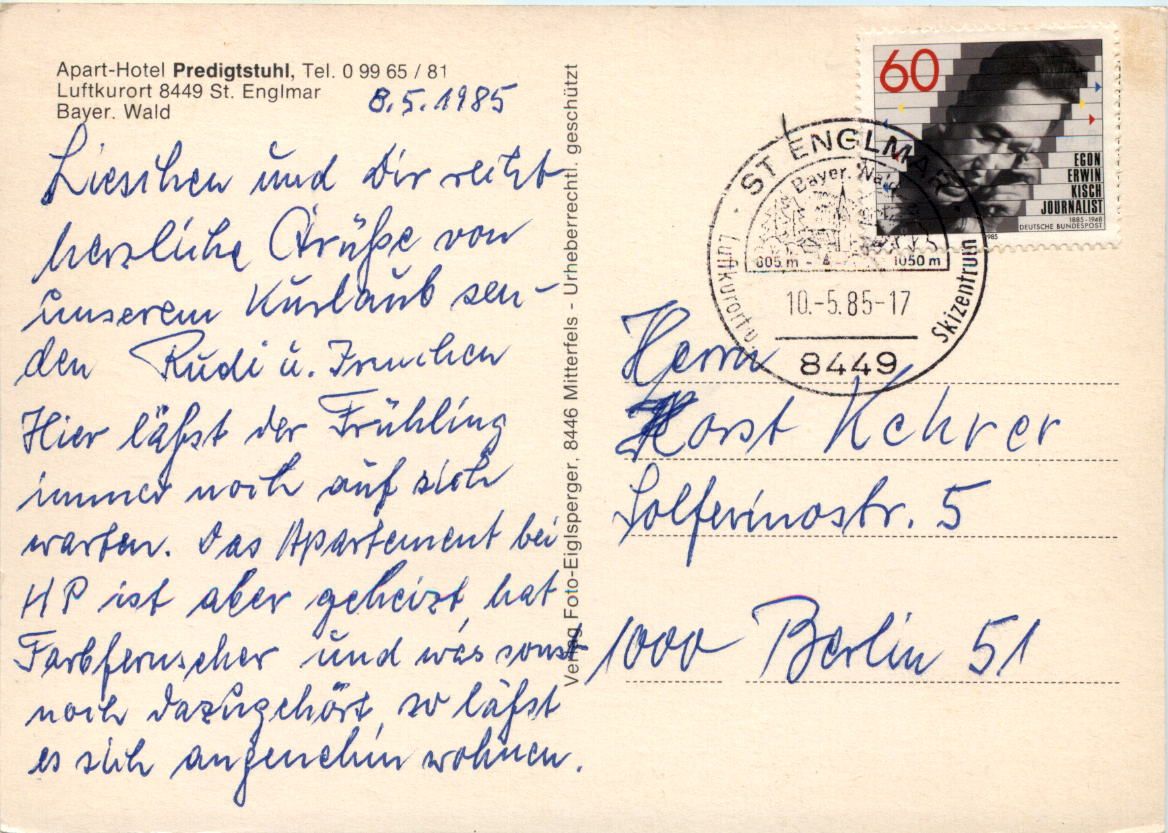 Apart-Hotel Predigtstuhl, Tel. 0 99 65 / 81
Luftkurort 8449 St. Englmar
Bayer. Wald
8.5.1985
Lieschen und Dir recht
herzliche Grüße von
unserem Kurlaub sen-
den Rudi u. Irmchen
Hier läßt der Frühling
immer noch auf sich
warten. Das Apartement bei
HP ist aber geheizt, hat
Farbfernseher und was sonst
noch dazugehört, so läßt
es sich angenehm wohnen.
Verlag Foto-Eiglsperger, 8446 Mitterfels - Urheberrechtl. geschützt
60
EGON
ERWIN
KISCH
JOURNALIST
1885-1948
DEUTSCHE BUNDESPOST
1985
ST ENGLMAR
Bayer. Wald
805 m - 1050 m
Luftkurort u. Skizentrum
10.-5.85-17
8449
Herrn
Horst Kehrer
Solferinostr. 5
1000 Berlin 51